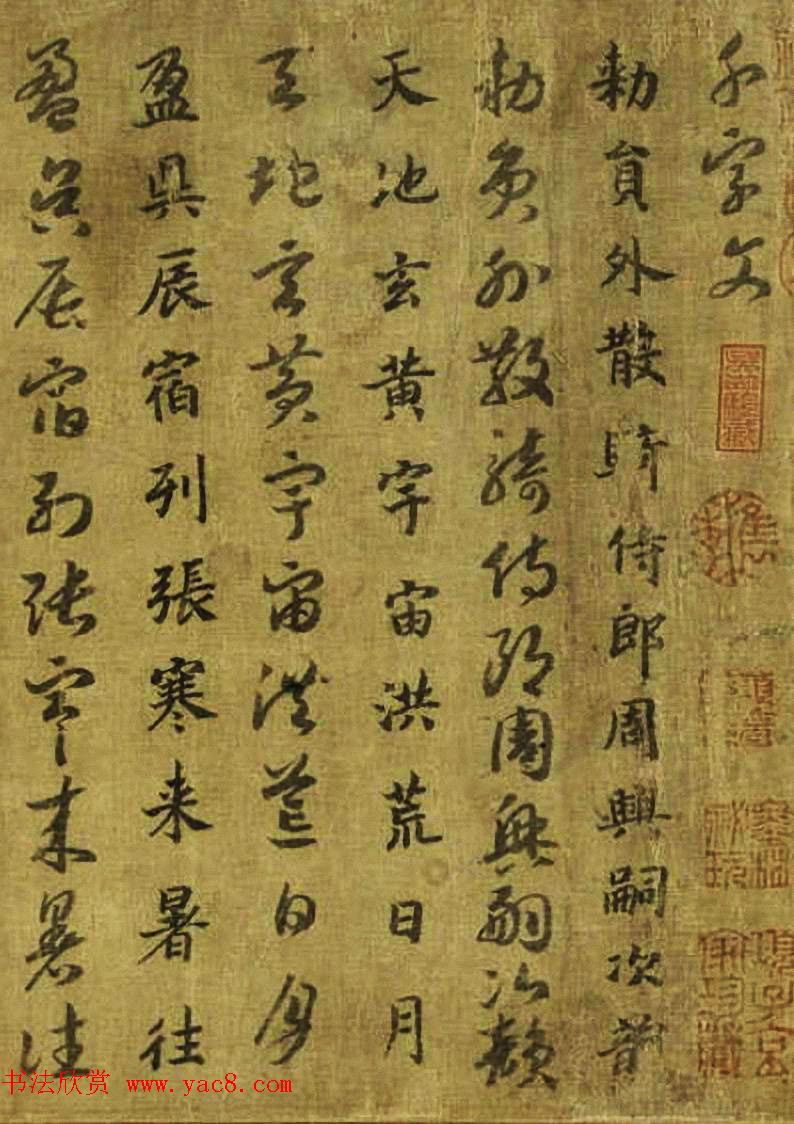 千字文
勅員外散騎侍郎周興嗣次韻
勅員外散騎侍郎周興嗣次韻
天地玄黄宇宙洪荒日月
天地玄黄宇宙洪荒日月
盈昃辰宿列張寒来暑往
盈昃辰宿列張寒来暑往
书法欣赏 www.yac8.com